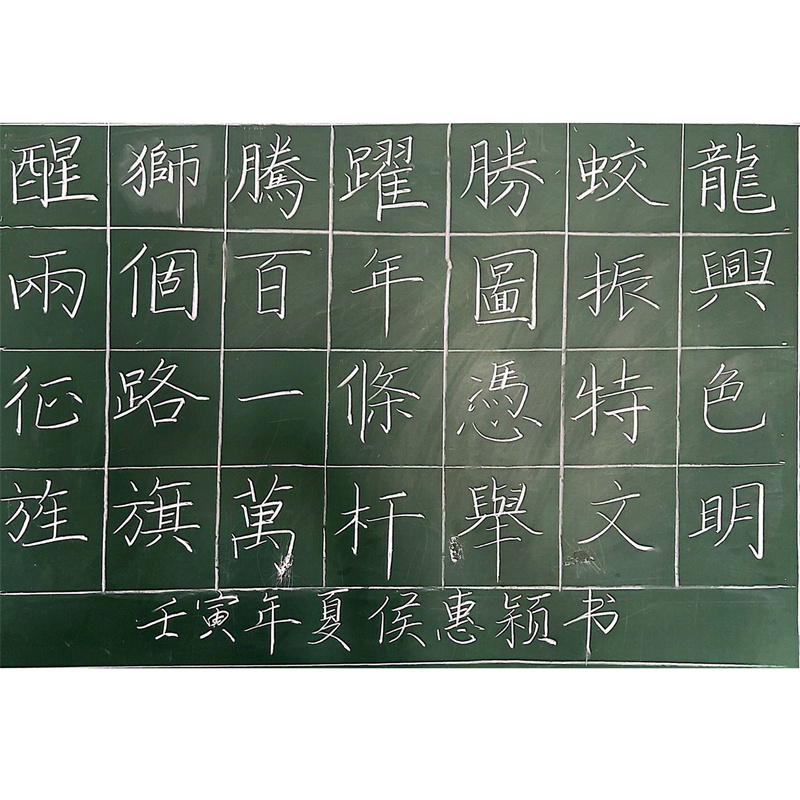 醒獅騰躍勝蛟龍
兩個百年圖振興
征路一條憑特色
旌旗萬杆舉文明
壬寅年夏侯惠颖书